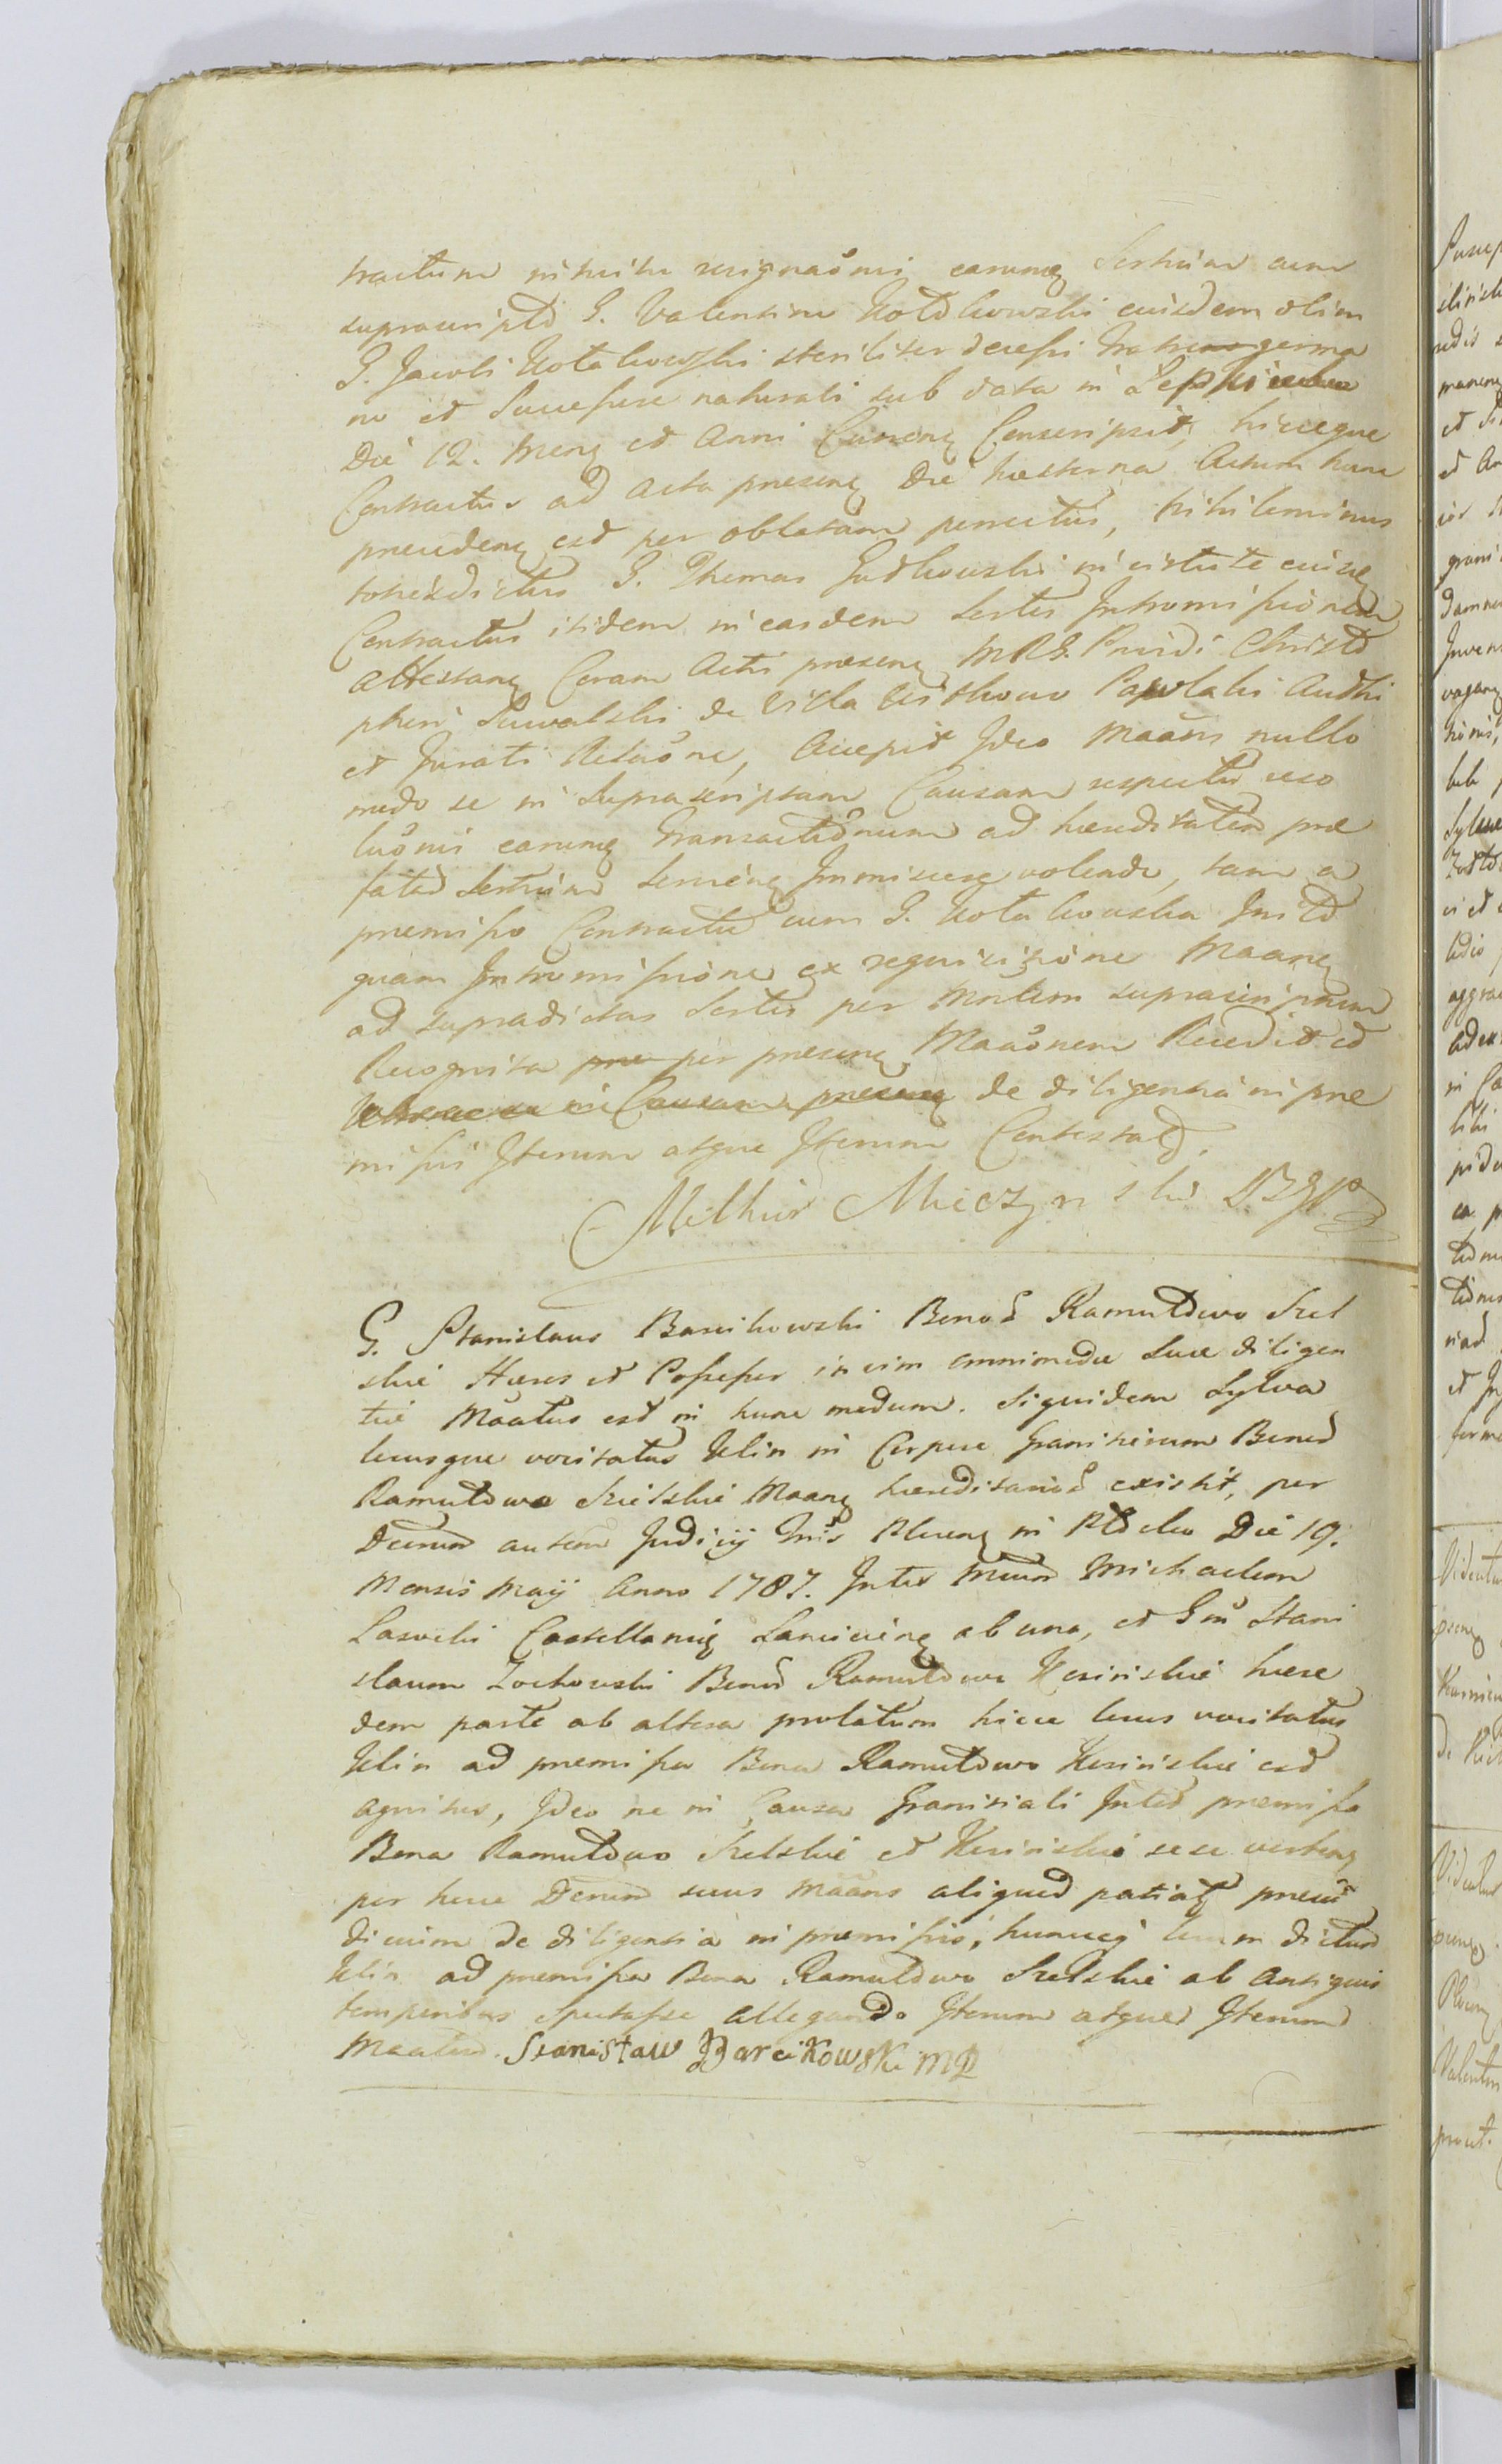 tractum intuitu resignaõnis earumq Sortium cum
suprascripto G. Valentino Kotakowski eiusdem olim
G. Jacobi Kotakowski steriliter decessi fratre germa
no et Successore naturali sub data in
Die 12. Mens et Anni Curren Conscripsit, hiccque
Contractus ad Acta presen Die hesterna Actum hunc
preceden est per oblatam porrectus, nihilominus
G. Thomas Gutkowski in virtute eiusq
Contractus itidem in easdem Sortes Intromissionem
attestan Coram Actis presen MRG. Pruidi Christo
pheri Suwalski de Villa Witkowo Authi
et Jurati Relaõne, Accepit Ideo Maãns nullo
modo se in Suprascriptam Causam respectu reso
luõnis earumq Transactionum ad haereditatem pre
fatar Sortium Immiscere volendo, tam a
premisso Contractu cum G. Kotakowska Inito
quam Intromissione ex requisitione Maanq
ad supradictas Sortes per Mnlem suprascriptum
Recognita per presen Maaõnem Recedit et
de diligentia in pre
missis Iterum atque Iterum Contestat.
Melhior Mieczynski

G. Stanislaus Barcikowski Bonor Ramutowo Szel
skie Haeres et Possessor in vim omnimodae Suae diligen
tiae Maãtus est in hunc modum. Siquidem Sylva
lucusque vocitatus Klin in Corpore Granitierum Bonor
Ramutowo Szelskie Maanq haereditarior existit, per
Decrum autem Judicij Tris Plocenq in Die 19.
Mensis Maij Anno 1787. Inter Mcum Michaelem
Lasocki Castellanum ab una, et Gm Stani
slaum Zochowski Bonor Ramutowo haere
dem parte ab altera prolatum hicce lucus vocitatus
Klin ad premissa Bona Ramutowo est
agnitus, Ideo ne in Causa Granitiali Inter premissa
Bona Ramutowo Szelskie et sese verten
per hocce Decrum suus Maãns aliquod patiat preiu
dicium de diligentia in premissis, huncq lucum dictum
Klin ad premissa Bona Ramutowo Szelskie ab Antiquis
temporibus spectasse allegando Iterum atque Iterum
Maatur. Stanisław Barcikowski MP